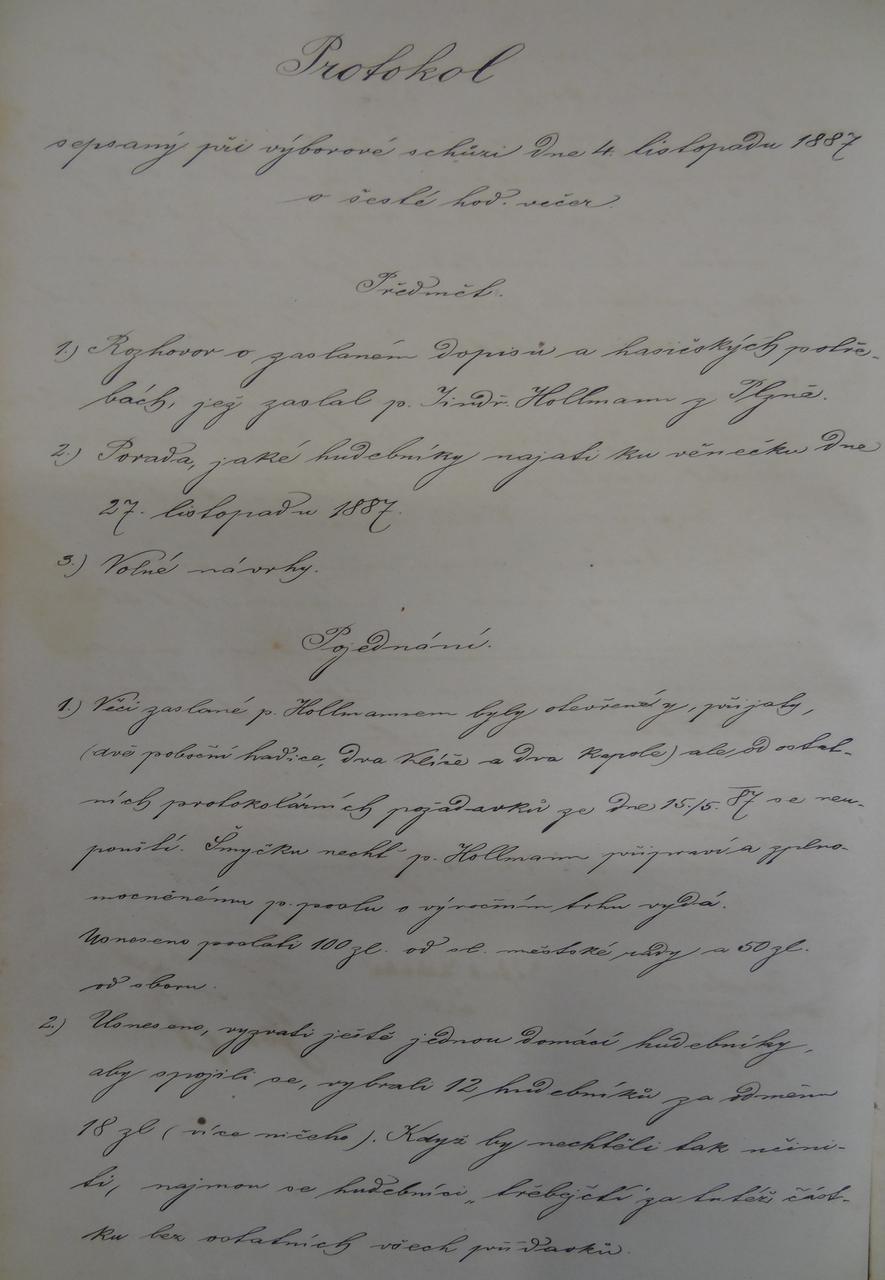 Protokol
sepsaný při výborové schůzi dne 4. listopadu 1887
o šesté hod. večer.
Předmět.
1.) Rozhovor o zaslaném dopisů a hasičských potře-
bách, jež zaslal p. Jindř. Hollmann z Plzně.
2.) Porada, jaké hudebníky najati ku věnečku dne
27. listopadu 1887.
3.) Volné návrhy.
Pojednání.
1.) Věci zaslané p. Hollmannem byly otevřené, přijaty,
(dvě poboční hadice, dva klíče a dva kopole) ale od ostat-
ních protokolárních požadavků ze dne 15./5. 87 se neu-
pouští. Šmyčku nechť p. Hollmann připraví a zplno-
mocněnému p. poslu o výročním trhu vydá.
Usneseno poslati 100 zl. od sl. městské rady a 50 zl.
od sboru.
2.) Usneseno, vyzvati ještě jednou domácí hudebníky,
aby spojili se, vybrali 12 hudebníků za odměnu
18 zl (více ničeho). Když by nechtěli tak učini-
ti, najmou se hudebníci „třebejčtí" za tutéž část-
ku bez ostatních všech přídavků.